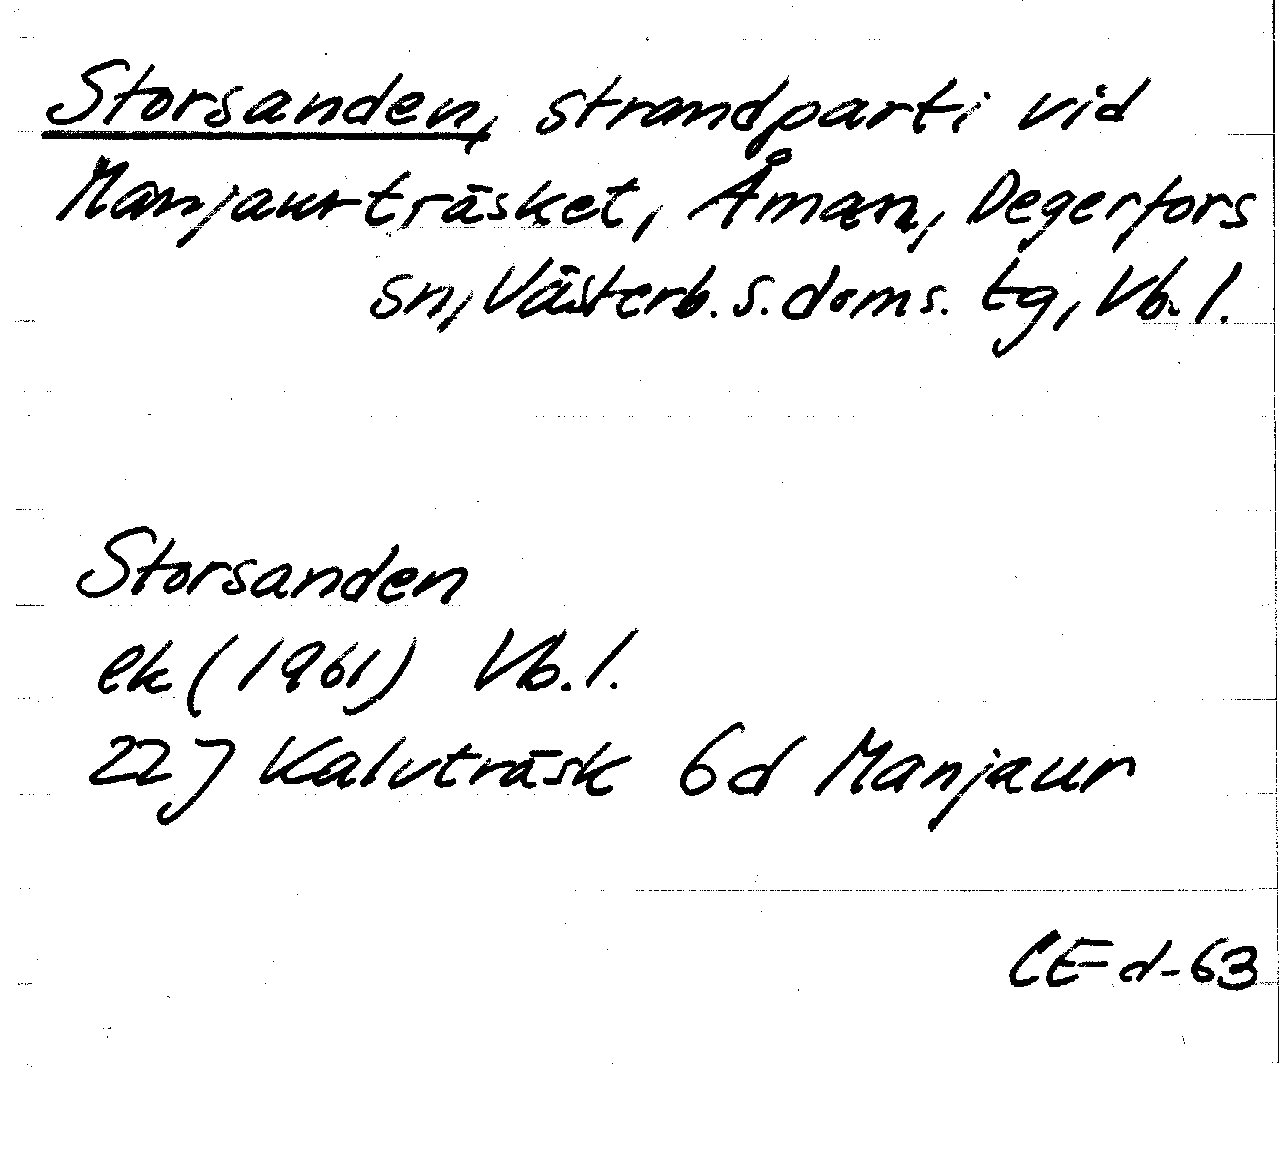 Storsanden, strandparti vid
Manjaurträsket, Åman, Degerfors
sn, Västerb. s. doms. tg, Vb. l.
Storsanden
ek (1961) Vb. l.
22 J Kalvträsk 6d Manjaur
CE-d-63